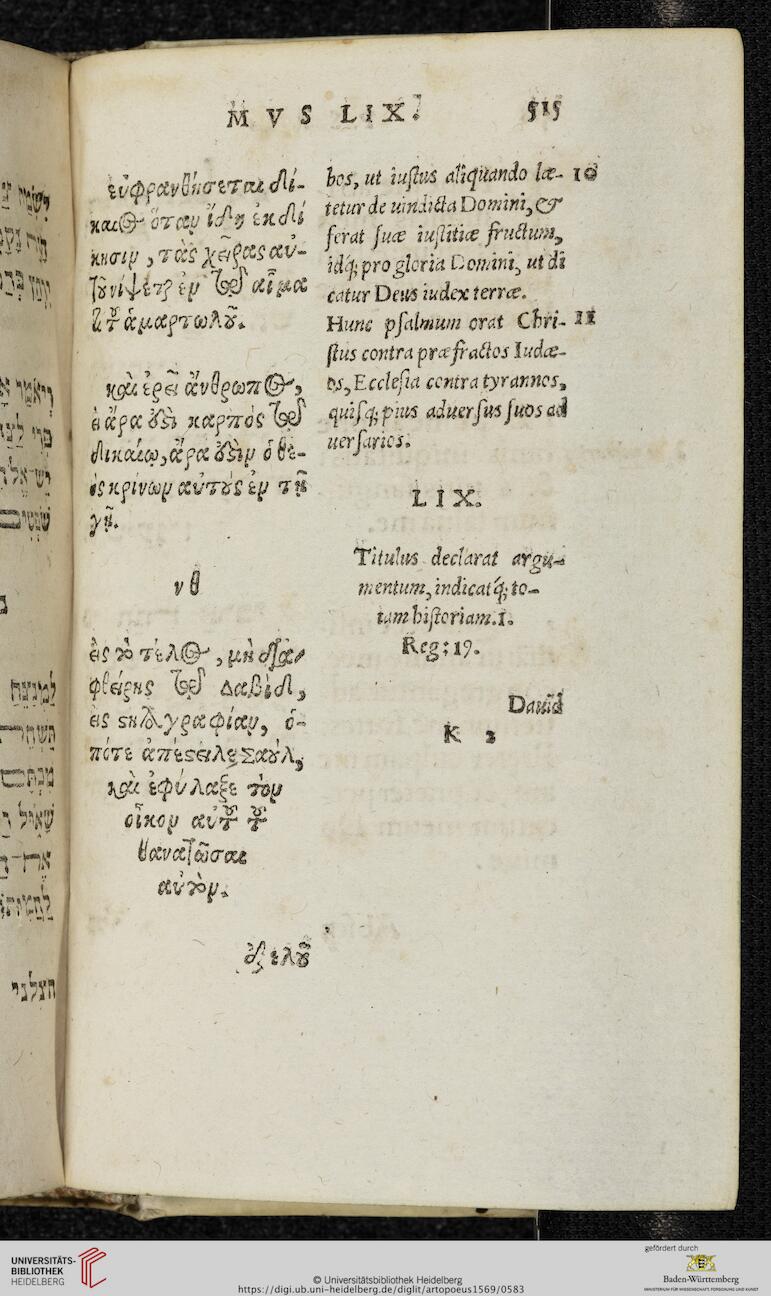 MVS LIX. 515
εὐφρανθήσεται δί-
καιος ὅταν ἴδῃ ἐκδί
κησιν, τὰς χεῖρας αὐ-
τοῦ νίψεται ἐν τῷ αἵματι
τοῦ ἁμαρτωλοῦ.
καὶ ἐρεῖ ἄνθρωπος,
εἰ ἄρα ἐστὶ καρπὸς τῷ
δικαίῳ, ἄρα ἐστὶν ὁ θε-
ὸς κρίνων αὐτοὺς ἐν τῇ
γῇ.
νθ
εἰς τὸ τέλος, μὴ δια-
φθείρῃς τῷ Δαβὶδ,
εἰς στηλογραφίαν, ὁ-
πότε ἀπέστειλε Σαοὺλ,
καὶ ἐφύλαξε τὸν
οἶκον αὐτοῦ τοῦ
θανατῶσαι
αὐτόν.
ἐξελοῦ
bos, ut iustus aliquando læ- 10
tetur de uindicta Domini, &
ferat suæ iustitiæ fructum,
idq; pro gloria Domini, ut di
catur Deus iudex terræ.
Hunc psalmum orat Chri- 11
stus contra præfractos Iudæ-
os, Ecclesia contra tyrannos,
quisq; pius aduersus suos ad
uersarios.
LIX.
Titulus declarat argu-
mentum, indicatq́; to-
tam historiam. 1.
Reg: 19.
Dauid
K 2
UNIVERSITÄTS-
BIBLIOTHEK
HEIDELBERG
© Universitätsbibliothek Heidelberg
https://digi.ub.uni-heidelberg.de/diglit/artopoeus1569/0583
gefördert durch
Baden-Württemberg
MINISTERIUM FÜR WISSENSCHAFT, FORSCHUNG UND KUNST